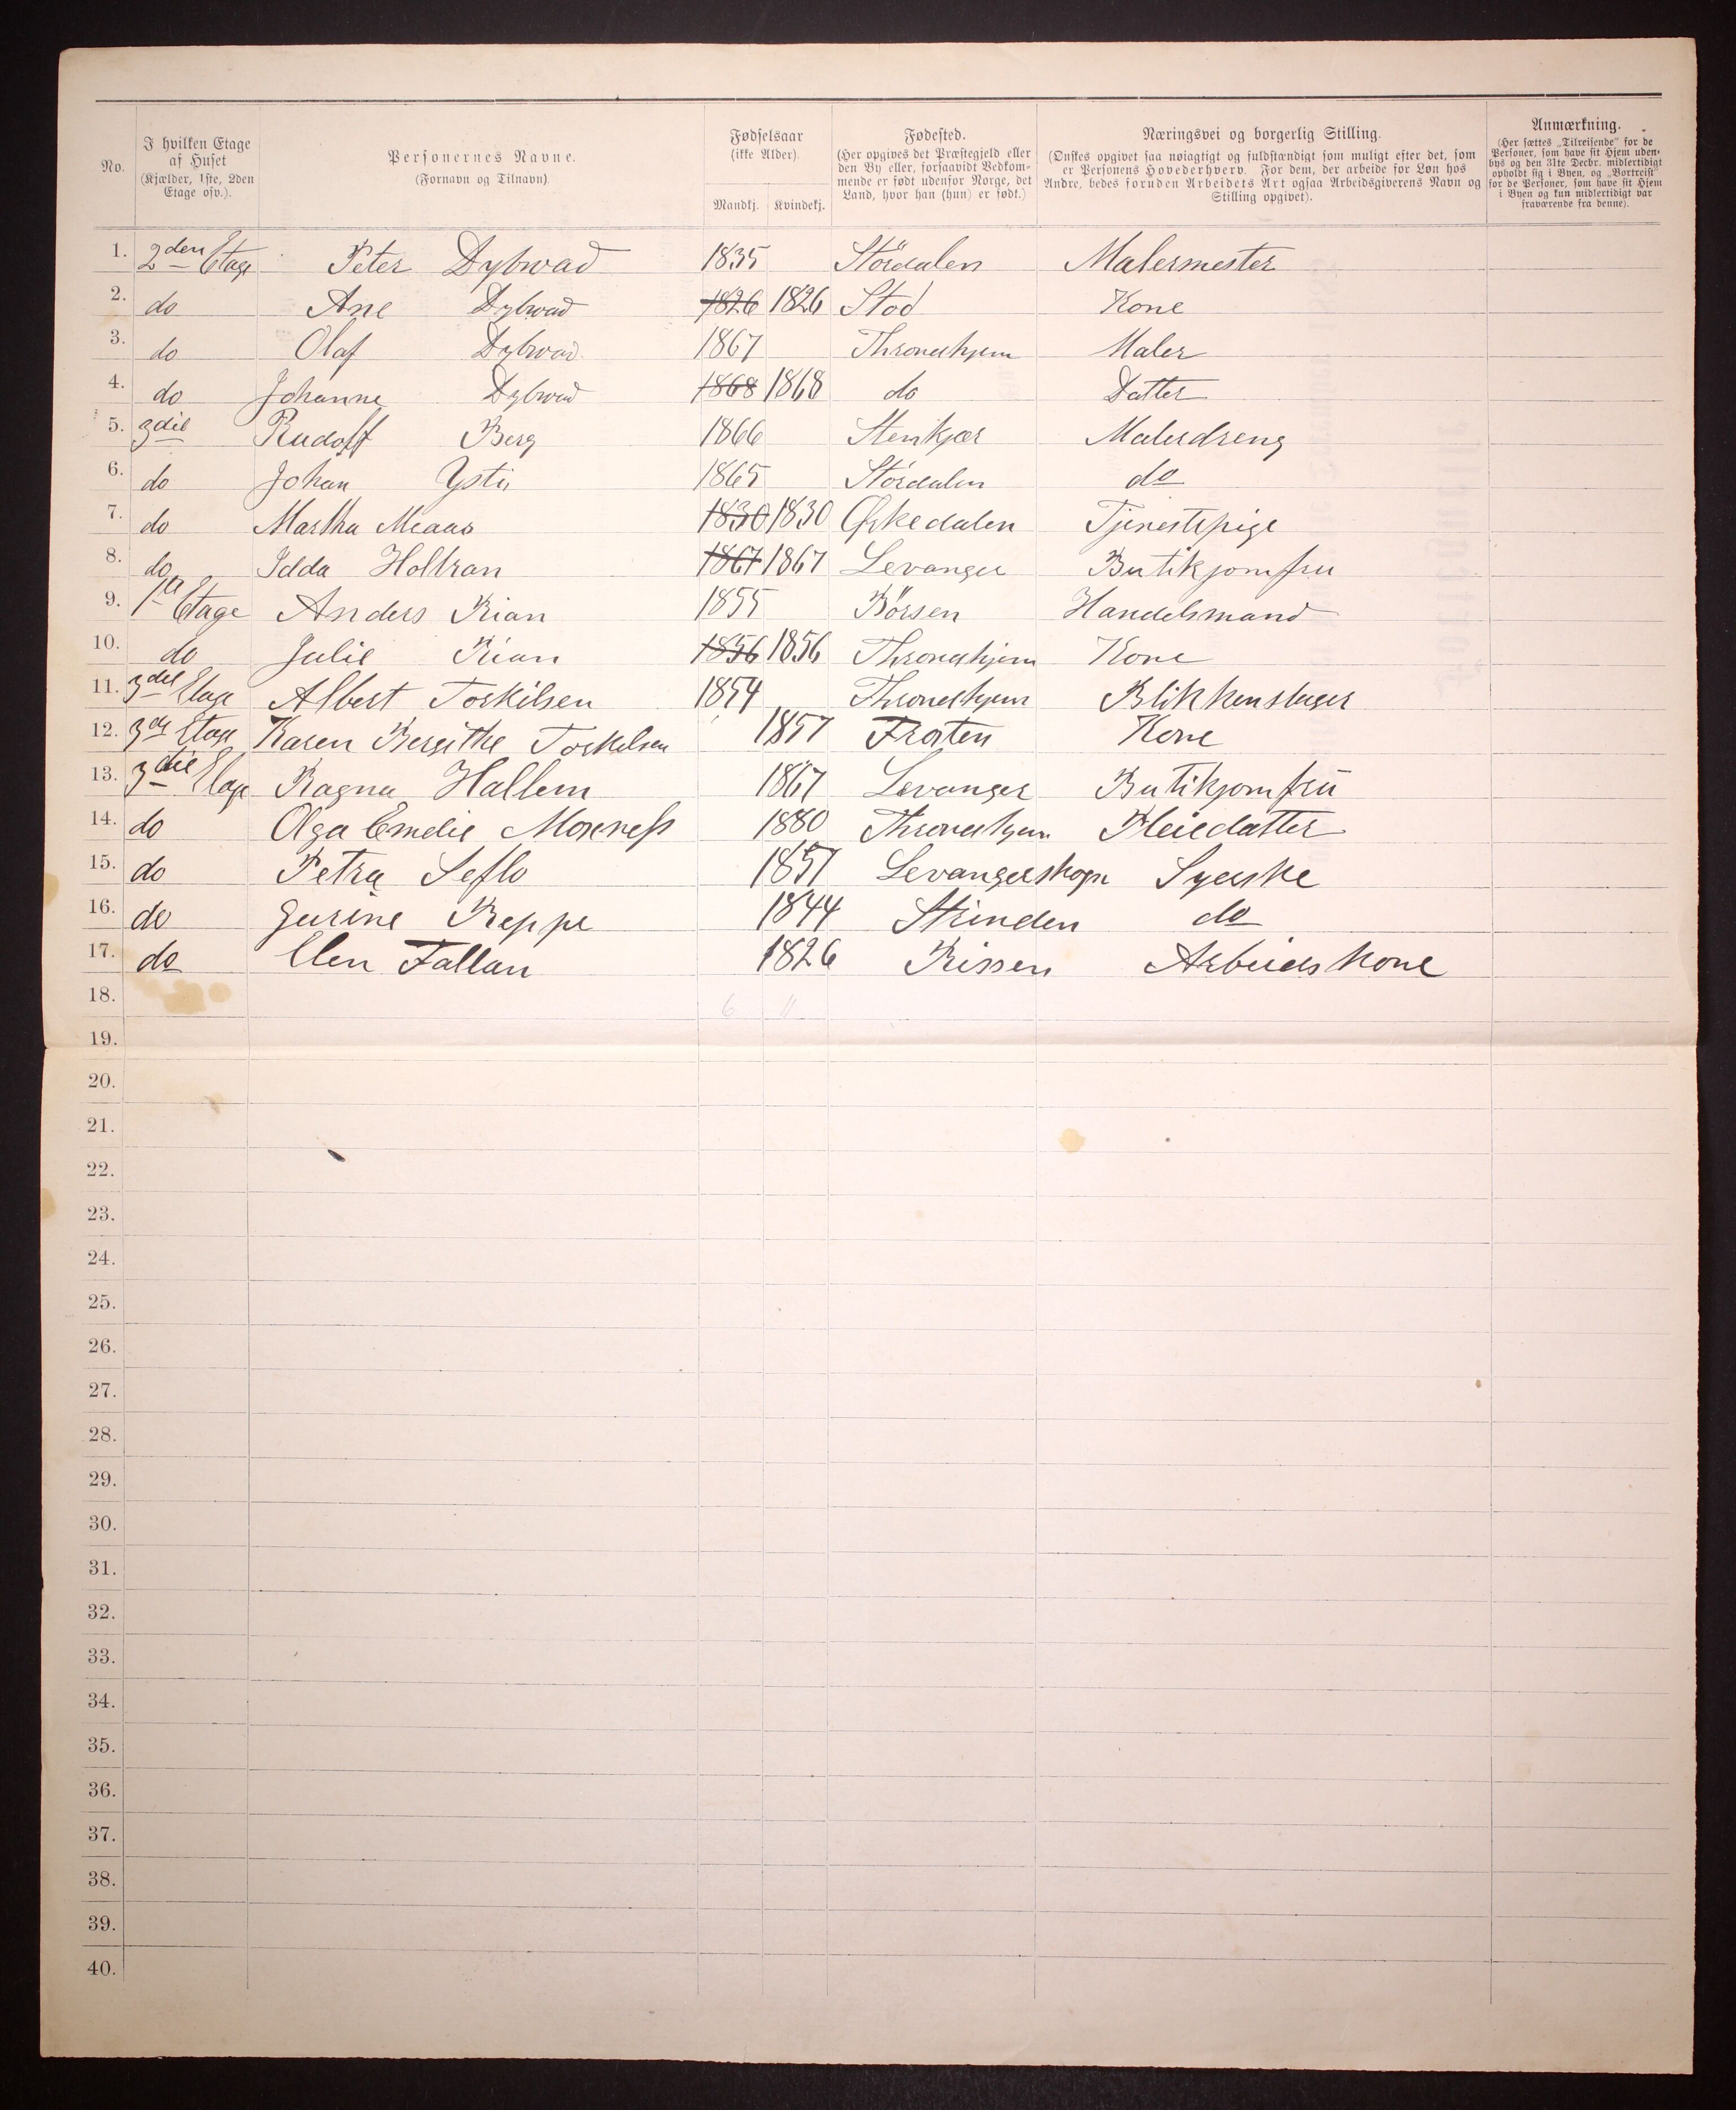 No.
I hvilken Etage af Huset (Kjælder, 1ste, 2den Etage osv.).
Personernes Navne. (Fornavn og Tilnavn)
Fødselsaar (ikke Alder)
Mandkj. Kvindekj.
Fødested. (Her opgives det Præstegjeld eller den By eller, forsaavidt Vedkommende er født udenfor Norge, det Land, hvor han (hun) er født.)
Næringsvei og borgerlig Stilling. (Ønskes opgivet saa nøiagtigt og fuldstændigt som muligt efter det, som er Personens Hovederhverv. For dem, der arbeide for Løn hos Andre, bedes foruden Arbeidets Art ogsaa Arbeidsgiverens Navn og Stilling opgivet).
Anmærkning. (Her sættes „Tilreisende" for de Personer, som have sit Hjem udenbys og den 31te Decbr. midlertidigt opholdt sig i Byen, og „Bortreist" for de Personer, som have sit Hjem i Byen og kun midlertidigt var fraværende fra denne).
1. 2den Etage Peter Dybwad 1835 Størdalen Malermester
2. do Ane Dybwad 1826 1826 Stod Kone
3. do Olaf Dybwad 1867 Throndhjem Maler
4. do Johanne Dybwad 1868 1868 do Datter
5. 3die Rudolf Berg 1866 Stenkjær Malerdreng
6. do Johan Ystie 1865 Stördalen do
7. do Martha Meaas 1830 1830 Ørkedalen Tjenestepige
8. do Idda Holtran 1867 1867 Levanger Butikjomfru
9. 1te Etage Anders Rian 1855 Börsen Handelsmand
10. do Julie Rian 1856 1856 Throndhjem Kone
11. 3die Etage Albert Torkilsen 1854 Throndhjem Blikkenslager
12. 3de Etage Karen Bergithe Torkelsen 1857 Frosten Kone
13. 3die Etage Ragna Hallem 1867 Levanger Butikjomfru
14. do Olga Emelie Moxness 1880 Throndhjem Pleiedatter
15. do Petra Seflo 1857 Levangerskogn Syerske
16. do Gurine Reppe 1844 Strinden do
17. do Elen Fallan 1826 Rissen Arbeidskone
18. 6 11
19.
20.
21.
22.
23.
24.
25.
26.
27.
28.
29.
30.
31.
32.
33.
34.
35.
36.
37.
38.
39.
40.